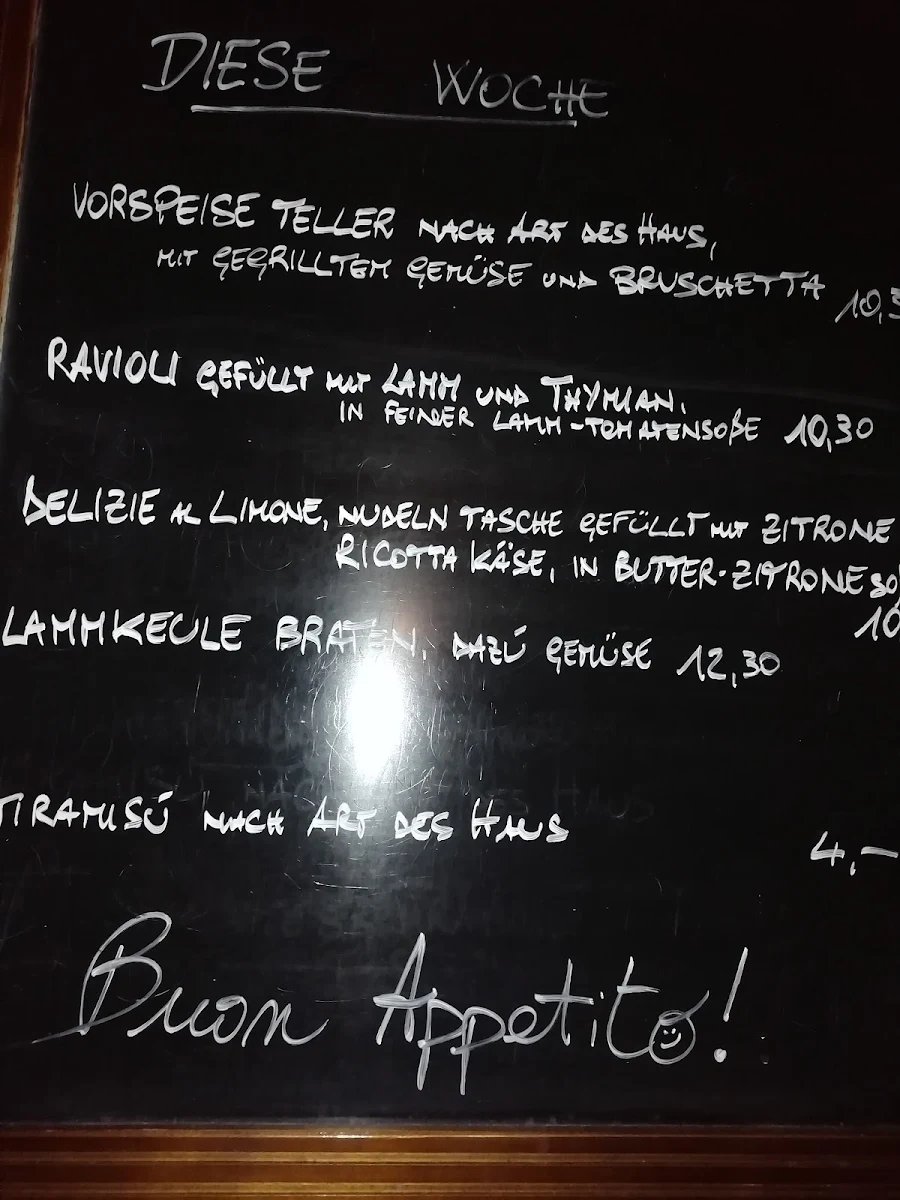 DIESE WOCHE
VORSPEISE TELLER NACH ART DES HAUS,
MIT GEGRILLTEM GEMÜSE UND BRUSCHETTA 10,3
RAVIOLI GEFÜLLT MIT LAMM UND THYMIAN,
IN FEINER LAMM-TOMATENSOßE 10,30
DELIZIE AL LIMONE, NUDELN TASCHE GEFÜLLT MIT ZITRONE
RICOTTA KÄSE, IN BUTTER-ZITRONESO
10
LAMMKEULE BRATEN, DAZÚ GEMÜSE 12,30
TIRAMISÚ NACH ART DES HAUS
4,-
Buon Appetito!